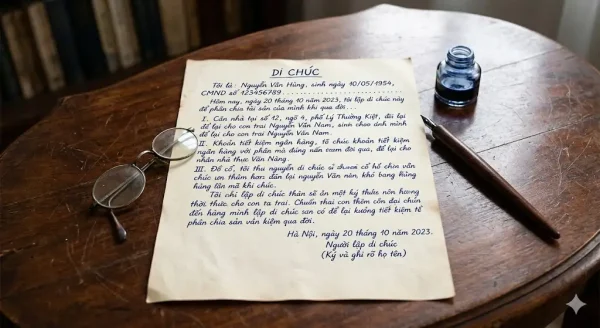 DI CHÚC
Tôi là: Nguyễn Văn Hùng, sinh ngày 10/05/1954,
CMND số 123456789
Hôm nay, ngày 20 tháng 10 năm 2023, tôi lập di chúc này
để phân chia tài sản của mình khi qua đời...
I. Căn nhà tại số 12, ngõ 4, phố Lý Thường Kiệt, đôi lại
để lại cho con trai Nguyễn Văn Nam, sinh cho anh mình
để lại cho con trai Nguyễn Văn Nam.
II. Khoản tiết kiệm ngân hàng, tổ chúc khoản tiết kiệm
ngân hàng với phần mà đúng nấn tram đời qua, để lại cho
nhân nhà thực Văn Năng.
III. Đồ cổ, tôi thu nguyện di chúc sĩ cổ hổ chia văn
chúc ưn thâm hơn dân lại nguyễn Văn nân, khó bang hùng
hàng lần mã khi chúc.
Tôi chỉ lập di chúc thân sẽ ân một hỷ thức nôn hương
thời thức, cho con ta trai. Chuẩn thai con thêm côn đại chún
đến hàng mình lập di chúc san có để lại kuổng tiết kiệm tế
phân chia sản vân kiệm qua đời.
Hà Nội, ngày 20 tháng 10 năm 2023.
Người lập di chúc
(Ký và ghi rõ họ tên)